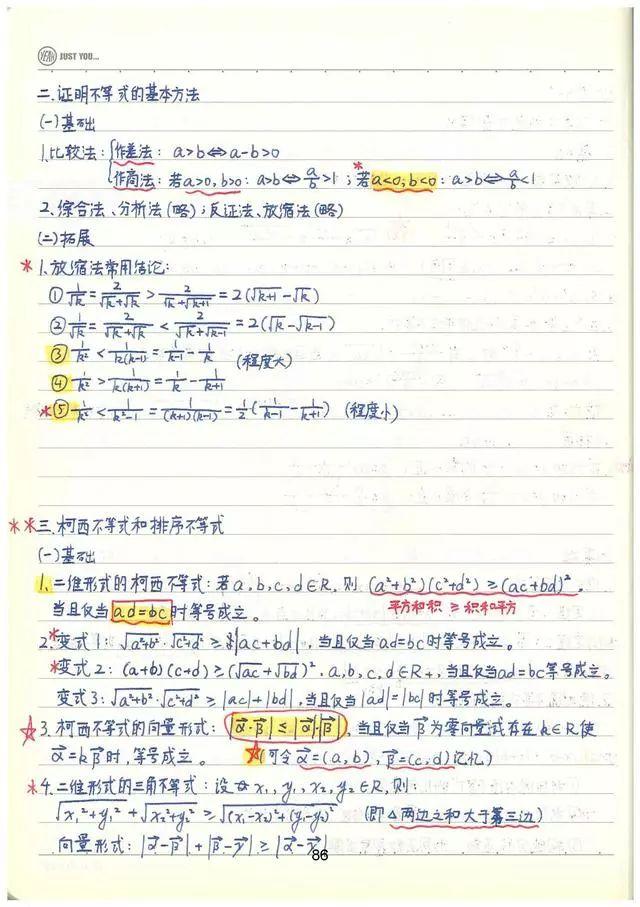 YEAH JUST YOU...
二.证明不等式的基本方法
(一)基础
1.比较法:{作差法: a>b⇔a-b>0
作商法: 若a>0,b>0: a>b⇔a/b>1 ; *若a<0,b<0: a>b⇔a/b<1
2.综合法、分析法(略);反证法、放缩法(略)
(二)拓展
*1.放缩法常用结论:
①1/√k = 2/(√k+√k) > 2/(√k+√(k+1)) = 2(√(k+1)-√k)
②1/√k = 2/(√k+√k) < 2/(√k+√(k-1)) = 2(√k-√(k-1))
③1/k² < 1/(k(k-1)) = 1/(k-1) - 1/k (程度大)
④1/k² > 1/(k(k+1)) = 1/k - 1/(k+1)
*⑤1/k² < 1/(k²-1) = 1/((k+1)(k-1)) = 1/2(1/(k-1) - 1/(k+1)) (程度小)
**三.柯西不等式和排序不等式
(一)基础
1.二维形式的柯西不等式:若a,b,c,d∈R,则 (a²+b²)(c²+d²)≥(ac+bd)²,
当且仅当ad=bc时等号成立。 平方和积 ≥ 积和平方
2.*变式1: √(a²+b²)·√(c²+d²) ≥ |ac+bd|,当且仅当ad=bc时等号成立。
*变式2: (a+b)(c+d)≥(√ac+√bd)².a,b,c,d∈R+,当且仅当ad=bc等号成立。
变式3: √(a²+b²)·√(c²+d²) ≥ |ac|+|bd|,当且仅当|ad|=|bc|时等号成立。
☆3.柯西不等式的向量形式: |α·β|≤|α|·|β|,当且仅当β为零向量或存在k∈R,使
α=kβ时,等号成立。 ★(可令α=(a,b),β=(c,d)记忆)
*4.二维形式的三角不等式:设x₁,y₁,x₂,y₂∈R,则:
√(x₁²+y₁²)+√(x₂²+y₂²)≥√((x₁-x₂)²+(y₁-y₂)²) (即△两边之和大于第三边)
向量形式: |α-β|+|β-γ|≥|α-γ|
86